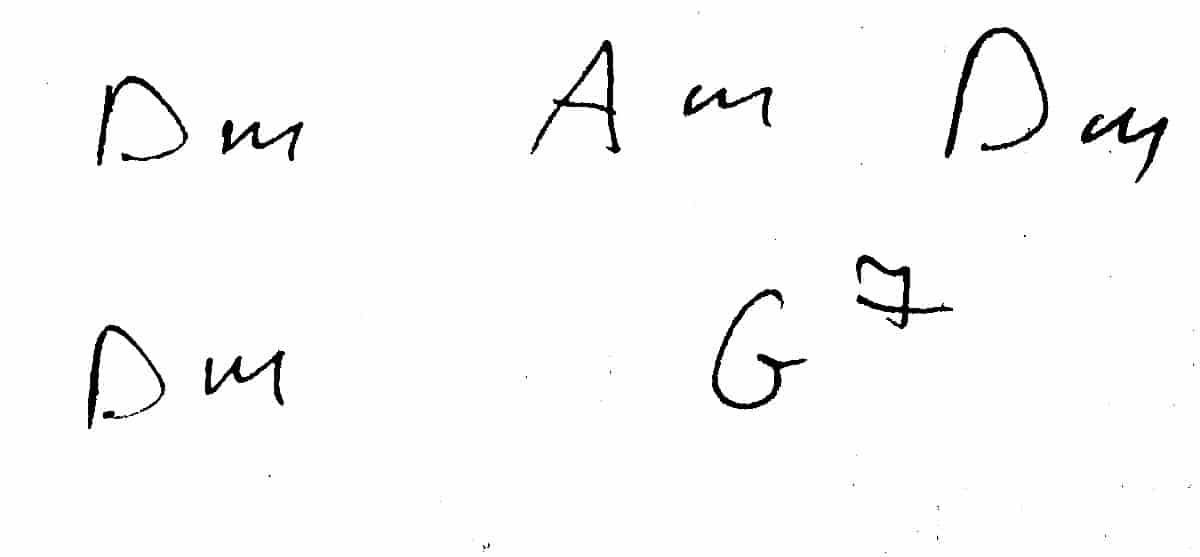 Dm Am Dm
Dm G7